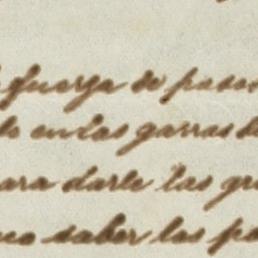 fuerza de pasa
do en las garras de
ara darle las gra
no saber los pa